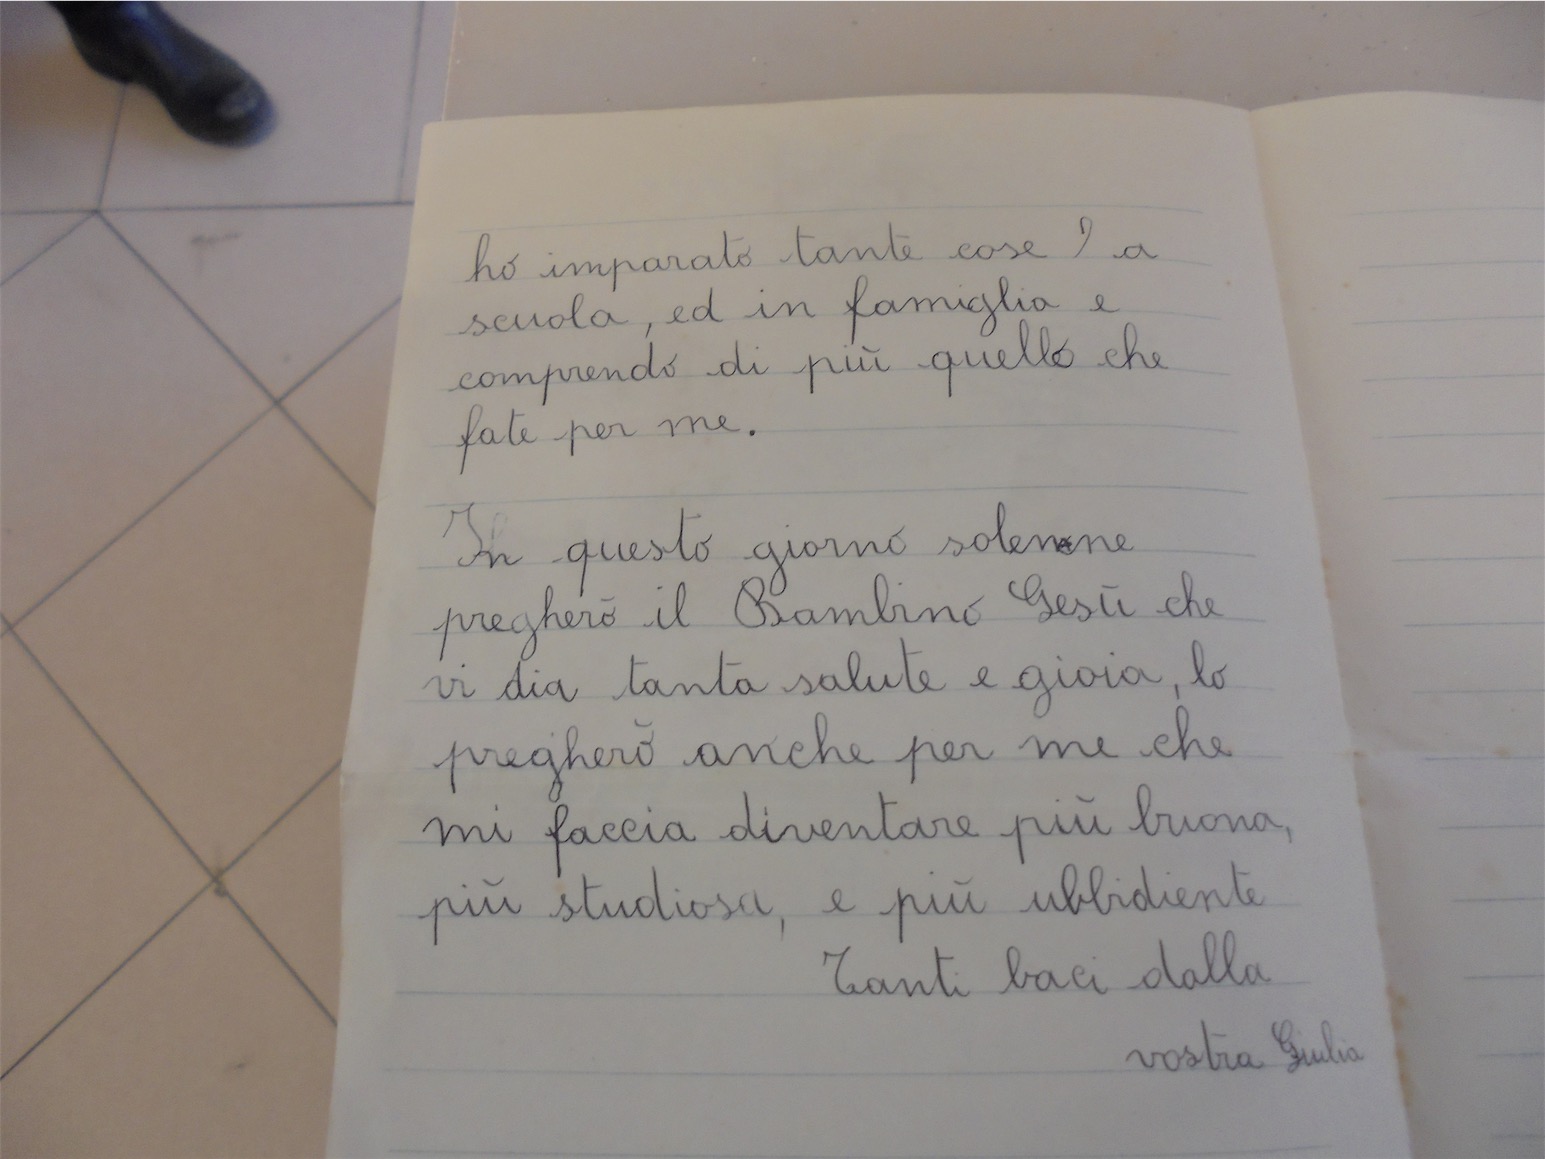 ho imparato tante cose, a
scuola, ed in famiglia e
comprendo di più quello che
fate per me.
In questo giorno solenne
pregherò il Bambino Gesù che
vi dia tanta salute e gioia, lo
pregherò anche per me che
mi faccia diventare più buona,
più studiosa, e più ubbidiente
Tanti baci dalla
vostra Giulia